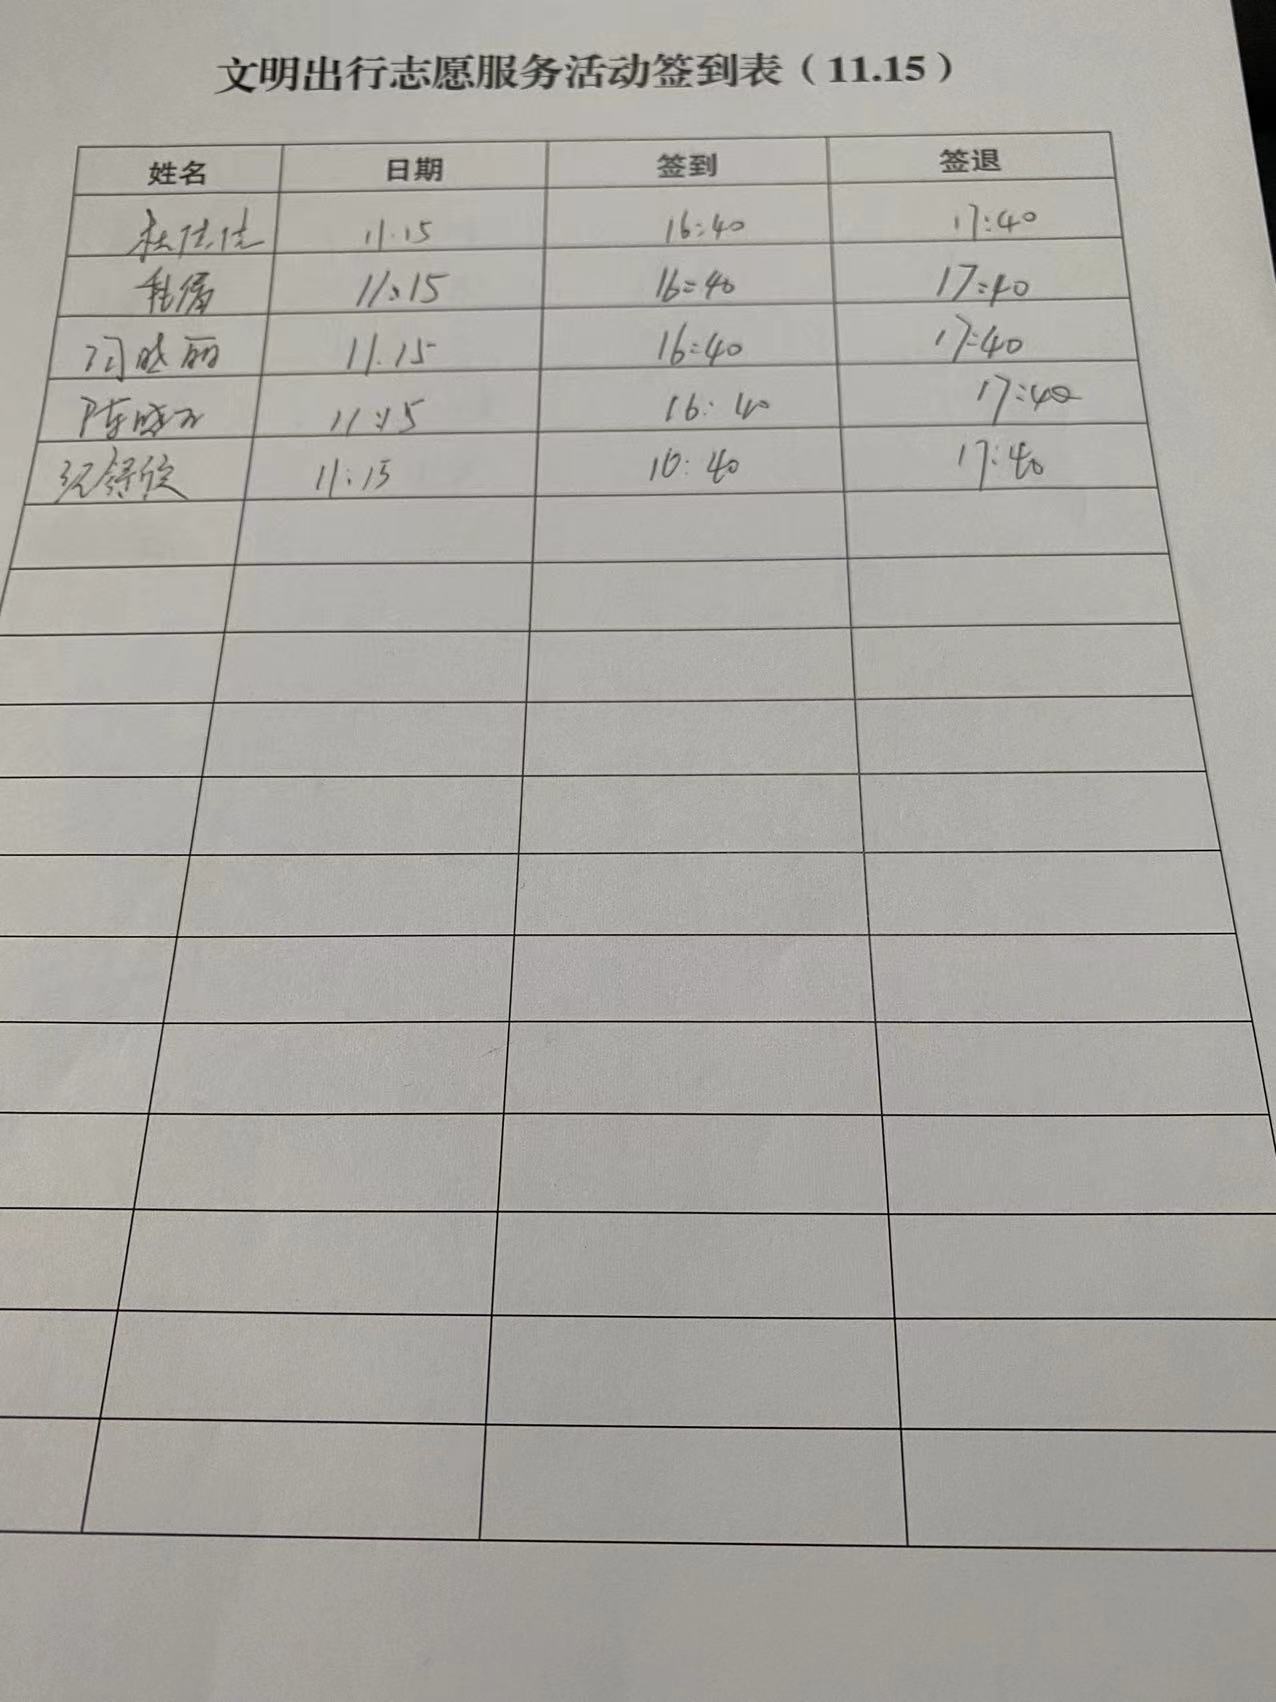 文明出行志愿服务活动签到表（11.15）
姓名 日期 签到 签退
杜佳佳 11.15 16:40 17:40
11:15 16:40 17:40
闫晓丽 11.15 16:40 17:40
陈晓 11:15 16:40 17:40
11:15 16:40 17:40